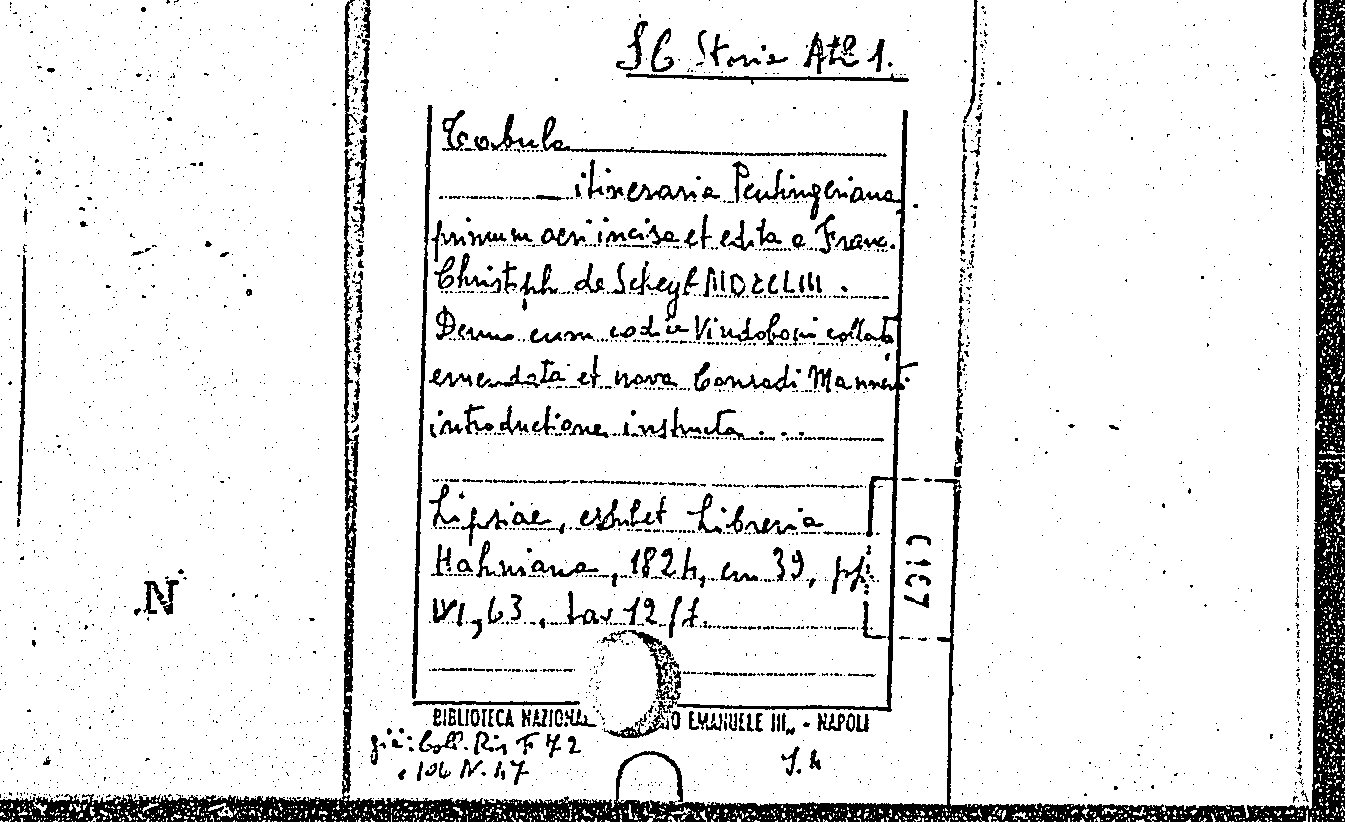 SC Storia Atl 1.
Tabula
itineraria Peutingeriana
primum aeri incisa et edita a Franc.
Christoph de Scheyb MDCCLIII.
Denuo cum codice Vindoboni collata
emendata et nova Conradi Manneri
introductione instructa ...
Lipsiae, Libreria
Hahniana, 1824, cm 39, pp.
VI, 63, tav 12 f.t.
C 167
N
BIBLIOTECA NAZIONA O EMANUELE III„ - NAPOLI
già: Coll. F 72
106 N. 47